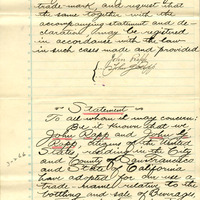 trade-mark, and request that
the same together with the
accompanying statement and de-
claration may be registered
in accordance with the law
in such cases made and provided
John Rapp
John G Rapp
Statement
To all whom it may concern.
Be it known that we
John Rapp and John G.
Rapp, citizens of the United
States, residing in the City
and County of San Francisco
and State of California
have adopted for our use a
trade-name relative to the
bottling and sale of Beverages